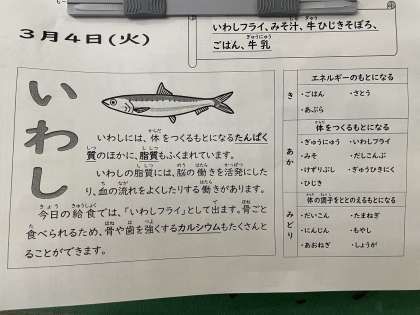 3月4日(火)
いわしフライ、みそ汁、牛ひじきそぼろ、
ごはん、牛乳
いわし
いわしには、体をつくるもとになるたんぱく
質のほかに、脂質もふくまれています。
いわしの脂質には、脳の働きを活発にした
り、血の流れをよくしたりする働きがあります。
今日の給食では、「いわしフライ」として出ます。骨ごと
食べられるため、骨や歯を強くするカルシウムもたくさんと
ることができます。
き
エネルギーのもとになる
・ごはん ・さとう
・あぶら
あか
体をつくるもとになる
・ぎゅうにゅう ・いわしフライ
・みそ ・だしこんぶ
・けずりぶし ・ぎゅうひきにく
・ひじき
みどり
体の調子をととのえるもとになる
・だいこん ・たまねぎ
・にんじん ・もやし
・あおねぎ ・しょうが